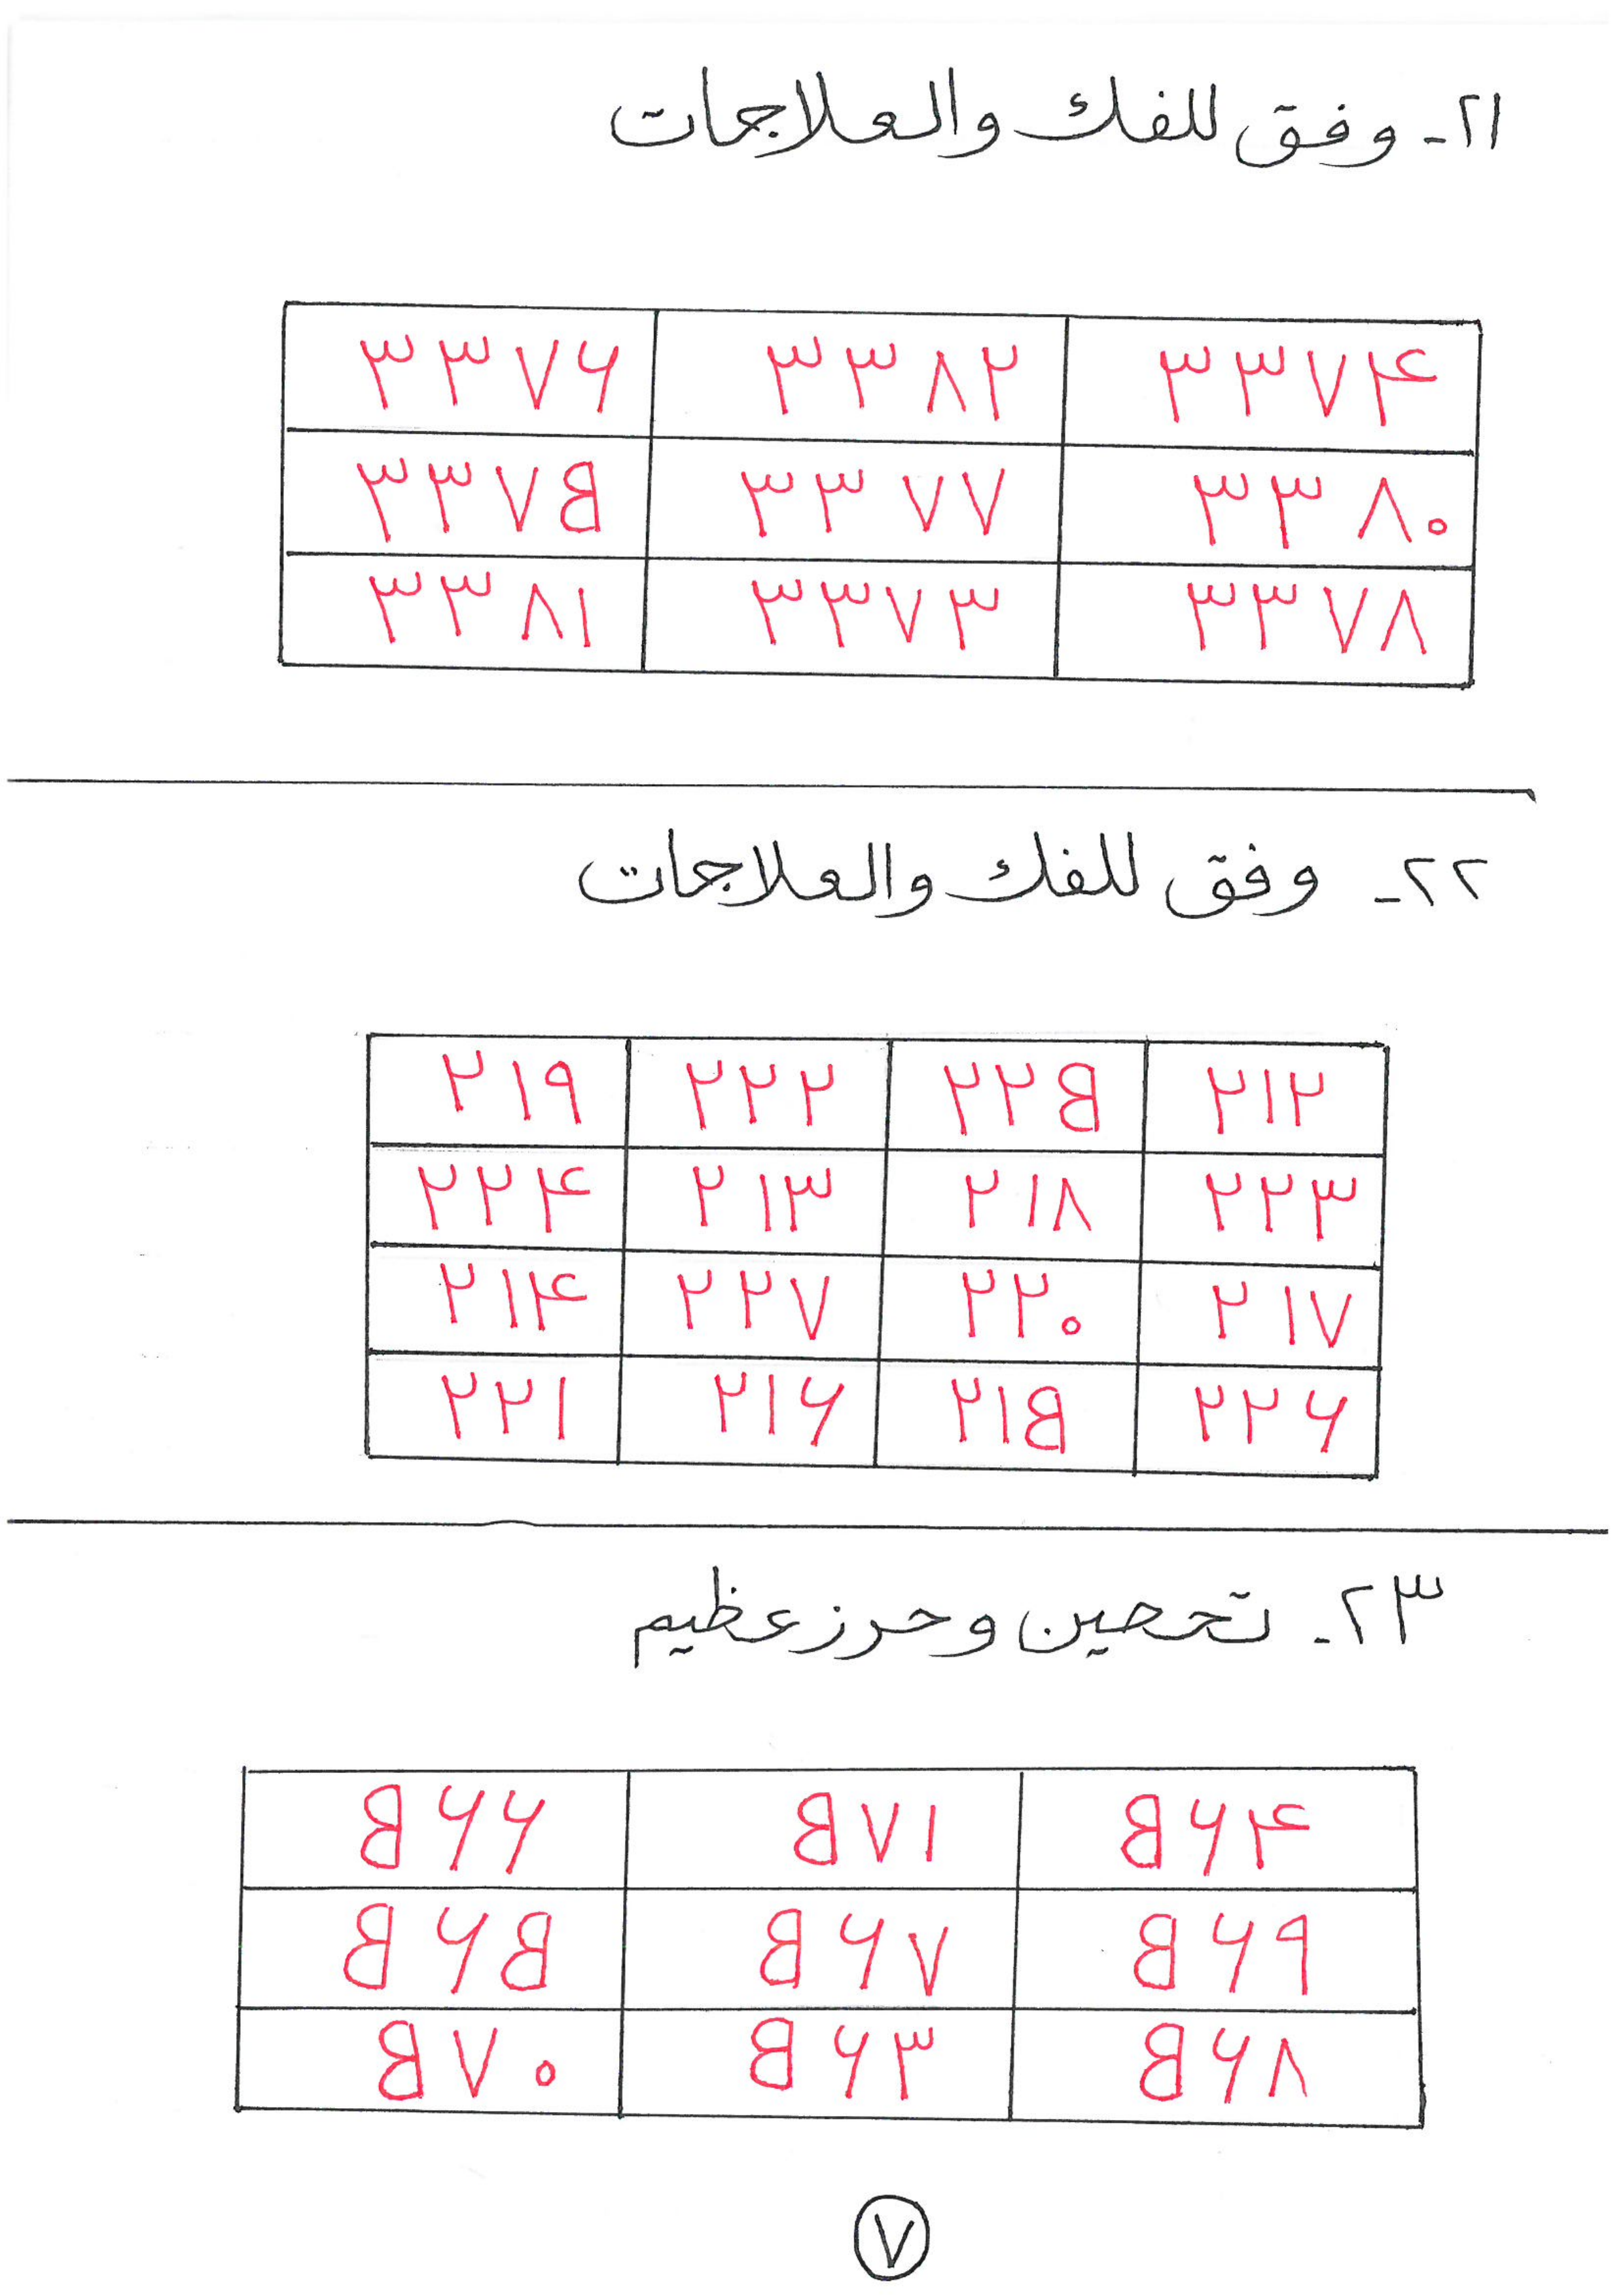 ٢١- وفق للفك والعلاجات
٣٣٧۶ ٣٣٨٢ ٣٣٧۴
٣٣٧B ٣٣٧٧ ٣٣٨٠
٣٣٨١ ٣٣٧٣ ٣٣٧٨
٢٢- وفق للفك والعلاجات
٢١٩ ٢٢٢ ٢٢B ٢١٢
٢٢۴ ٢١٣ ٢١٨ ٢٢٣
٢١۴ ٢٢٧ ٢٢٠ ٢١٧
٢٢١ ٢١۶ ٢١B ٢٢۶
٢٣- تحصين وحرز عظيم
B۶۶ B٧١ B۶۴
B۶B B۶٧ B۶٩
B٧٠ B۶٣ B۶٨
٧